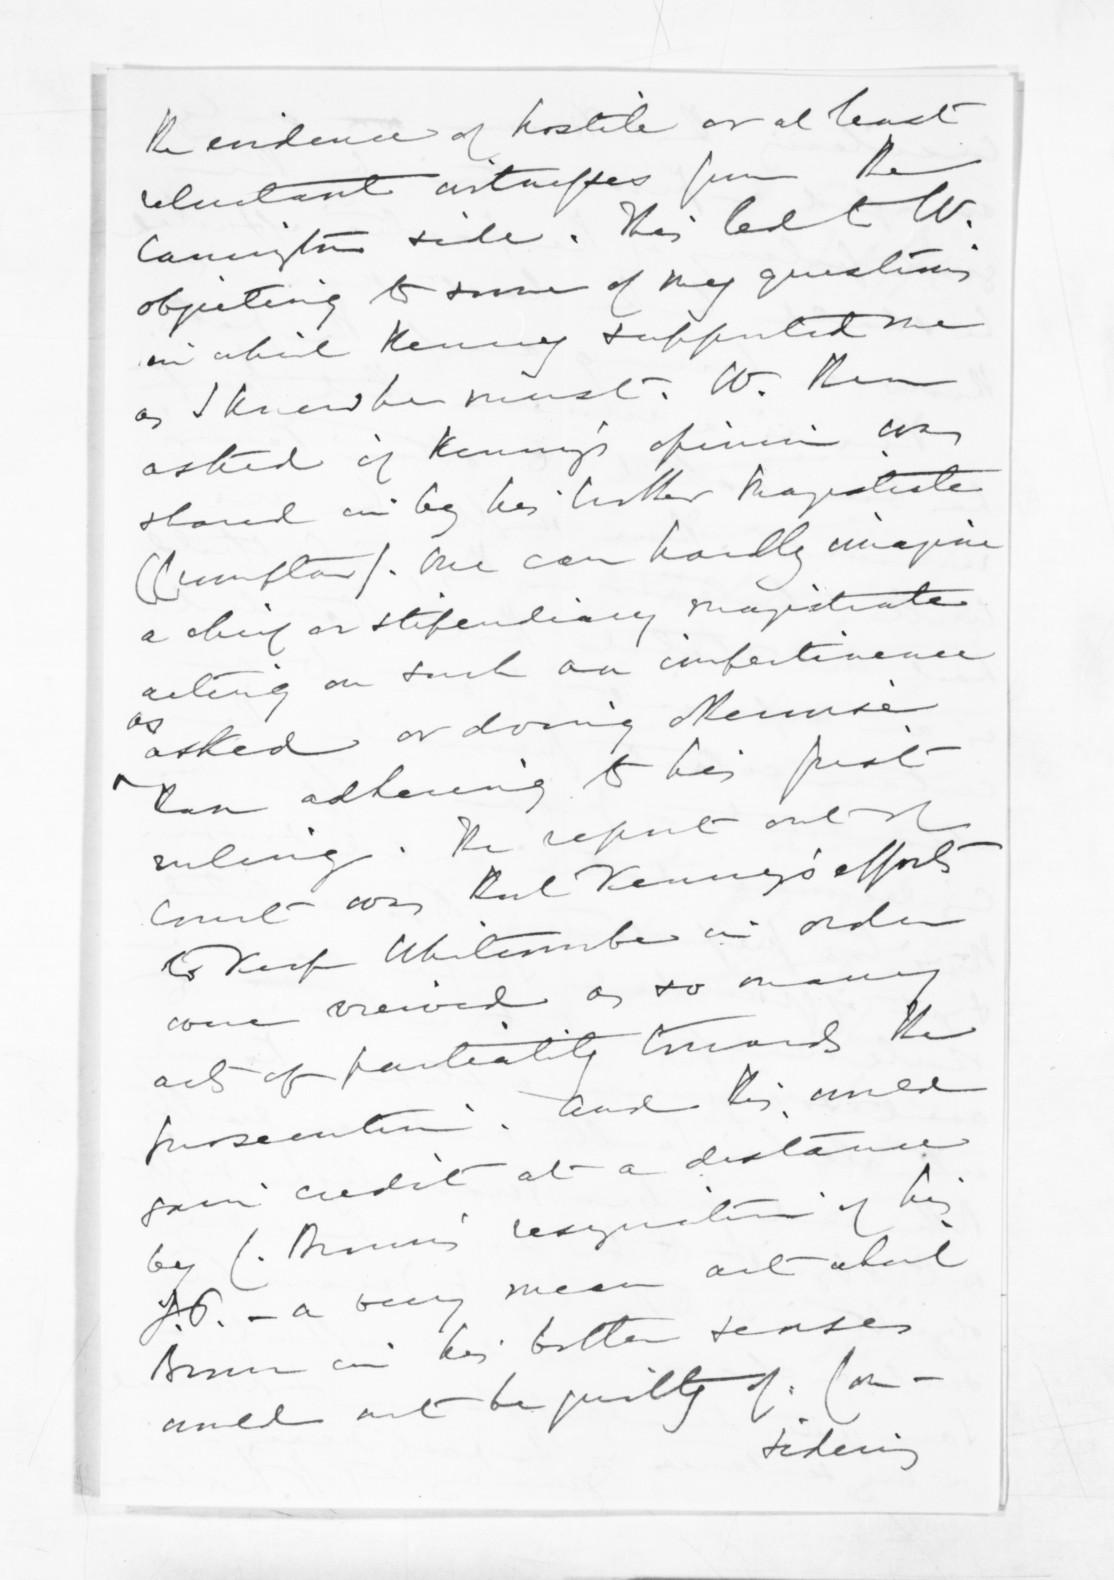 the evidence of hostile or at least
reluctant witnesses from the
Carrington side. This led to W.
objecting to some of my questions
in which Kenny supported me
as I knew he must. W. then
asked if Kenny's opinion was
shared in by his brother Magistrate
(Crompton). One can hardly imagine
a chief or stipendiary magistrate
acting on such an impertinence
as
asked or doing otherwise
than adhering to his first
ruling. The report out of
Court was that Kenny's efforts
to keep Whitcombe in order
were viewed as so many
acts of partiality towards the
prosecution. And this would
gain credit at a distance
by C. Brown's resignation of his
J.P. - a very mean act which
Brown in his better senses
would not be guilty of. Con-
sidering